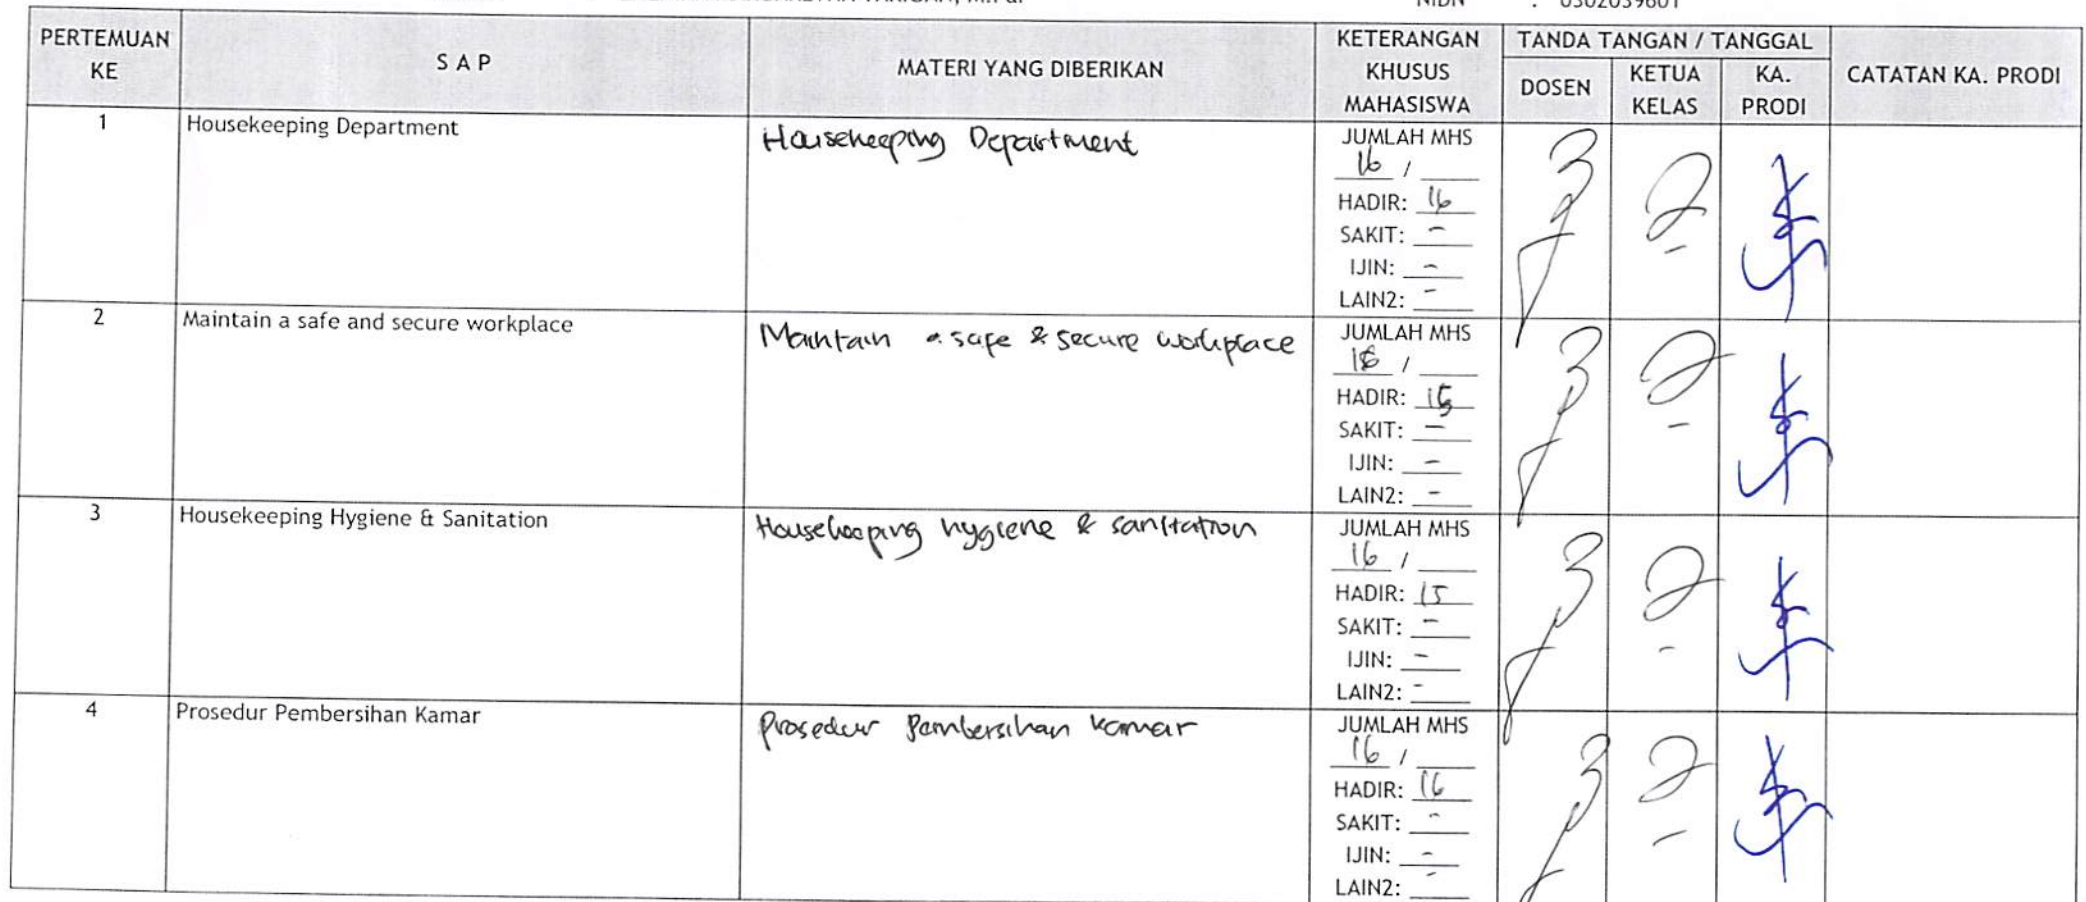 NIDN : 0302039601
PERTEMUAN KE
S A P
MATERI YANG DIBERIKAN
KETERANGAN KHUSUS MAHASISWA
TANDA TANGAN / TANGGAL
DOSEN
KETUA KELAS
KA. PRODI
CATATAN KA. PRODI
1
Housekeeping Department
Housekeeping Department
JUMLAH MHS
16 /
HADIR: 16
SAKIT: -
IJIN: -
LAIN2: -
2
Maintain a safe and secure workplace
Maintain a safe & secure workplace
JUMLAH MHS
16 /
HADIR: 15
SAKIT: -
IJIN: -
LAIN2: -
3
Housekeeping Hygiene & Sanitation
Housekeeping hygiene & sanitation
JUMLAH MHS
16 /
HADIR: 15
SAKIT: -
IJIN: -
LAIN2: -
4
Prosedur Pembersihan Kamar
Prosedur Pembersihan kamar
JUMLAH MHS
16 /
HADIR: 16
SAKIT: -
IJIN: -
LAIN2: -